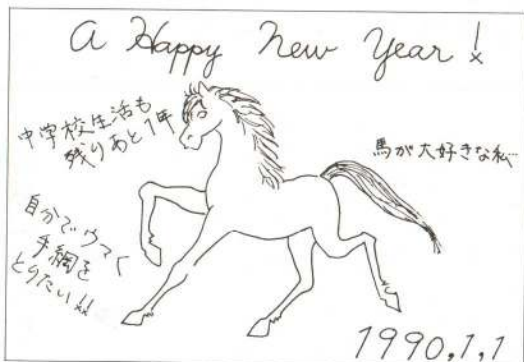 A Happy New Year!
中学校生活も
残りあと1年
馬が大好きな私…
自分でウマく
手綱を
とりたい!!
1990.1.1